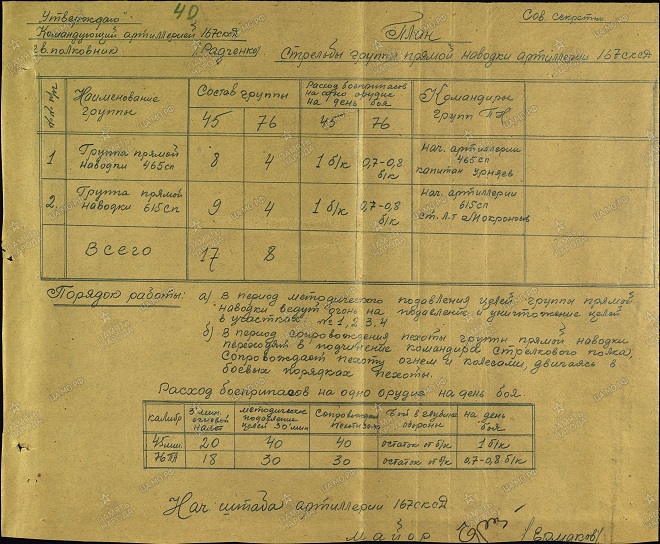 Утверждаю
40
Сов. секретно
Командующий артиллерией 167СКСД
План
гв. полковник /Радченко/
Стрельбы групп прямой наводки артиллерии 167СКСД
Наименование группы
Состав группы
Расход боеприпасов на одно орудие на день боя
Командиры групп ПН
45 76 45 76
1 Группа прямой наводки 465сп 8 4 1 б/к 0,7-0,8 б/к Нач. артиллерии 465сп капитан
2. Группа прямой наводки 615сп 9 4 1 б/к 0,7-0,8 б/к Нач. артиллерии 615сп ст. л-т
Всего 17 8
Порядок работы: а) В период методического подавления целей группы прямой
наводки ведут огонь на подавление и уничтожение целей
в участках №1,2,3,4
б) В период сопровождения пехоты группы прямой наводки
переходят в подчинение командира стрелкового полка,
Сопровождает пехоту огнем и колесами, двигаясь в
боевых порядках пехоты.
Расход боеприпасов на одно орудие на день боя
калибр 3' мин. огневой налет методическое подавление целей 30' мин Сопровожден Бой в глубине обороны на день боя
45мм. 20 40 40 остаток от б/к 1 б/к
76 18 30 30 остаток от б/к 0,7-0,8 б/к
Нач штаба артиллерии 167СКСД
Майор /Ермаков/